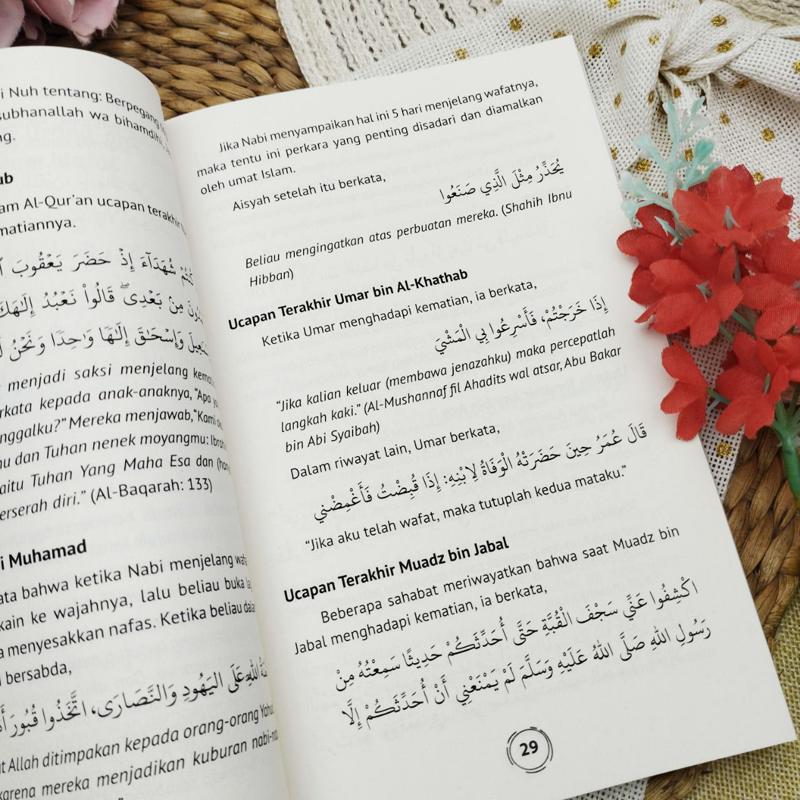 i Nuh tentang: Berpegang
subhanallah wa bihamdihi
ng.
ub
am Al-Qur'an ucapan terakhir
matiannya.
شُهَدَآءَ إِذْ حَضَرَ يَعْقُوبَ
مِنْ بَعْدِى قَالُوا نَعْبُدُ إِلَـٰهَكَ
وَإِسْحَـٰقَ إِلَـٰهًا وَٰحِدًا وَنَحْنُ
menjadi saksi menjelang
rkata kepada anak-anaknya, "Apa
nggalku?" Mereka menjawab, "Kami
u dan Tuhan nenek moyangmu:
aitu Tuhan Yang Maha Esa dan
erserah diri." (Al-Baqarah: 133)
i Muhamad
ata bahwa ketika Nabi menjelang
kain ke wajahnya, lalu beliau buka
a menyesakkan nafas. Ketika beliau
bersabda,
عَلَى الْيَهُودِ وَالنَّصَارَى، اتَّخَذُوا قُبُورَ
t Allah ditimpakan kepada orang-orang
karena mereka menjadikan kuburan
Jika Nabi menyampaikan hal ini 5 hari menjelang wafatnya,
maka tentu ini perkara yang penting disadari dan diamalkan
oleh umat Islam.
Aisyah setelah itu berkata,
يُحَذِّرُ مِثْلَ الَّذِي صَنَعُوا
Beliau mengingatkan atas perbuatan mereka. (Shahih Ibnu
Hibban)
Ucapan Terakhir Umar bin Al-Khathab
Ketika Umar menghadapi kematian, ia berkata,
إِذَا خَرَجْتُمْ، فَأَسْرِعُوا بِي الْمَشْيَ
"Jika kalian keluar (membawa jenazahku) maka percepatlah
langkah kaki." (Al-Mushannaf fil Ahadits wal atsar, Abu Bakar
bin Abi Syaibah)
Dalam riwayat lain, Umar berkata,
قَالَ عُمَرُ حِينَ حَضَرَتْهُ الْوَفَاةُ لِابْنِهِ: إِذَا قُبِضْتُ فَأَغْمِضْنِي
"Jika aku telah wafat, maka tutuplah kedua mataku."
Ucapan Terakhir Muadz bin Jabal
Beberapa sahabat meriwayatkan bahwa saat Muadz bin
Jabal menghadapi kematian, ia berkata,
اكْشِفُوا عَنِّي سَجْفَ الْقُبَّةِ حَتَّى أُحَدِّثَكُمْ حَدِيثًا سَمِعْتُهُ مِنْ
رَسُولِ اللهِ صَلَّى اللهُ عَلَيْهِ وَسَلَّمَ لَمْ يَمْنَعْنِي أَنْ أُحَدِّثَكُمْ إِلَّا
29